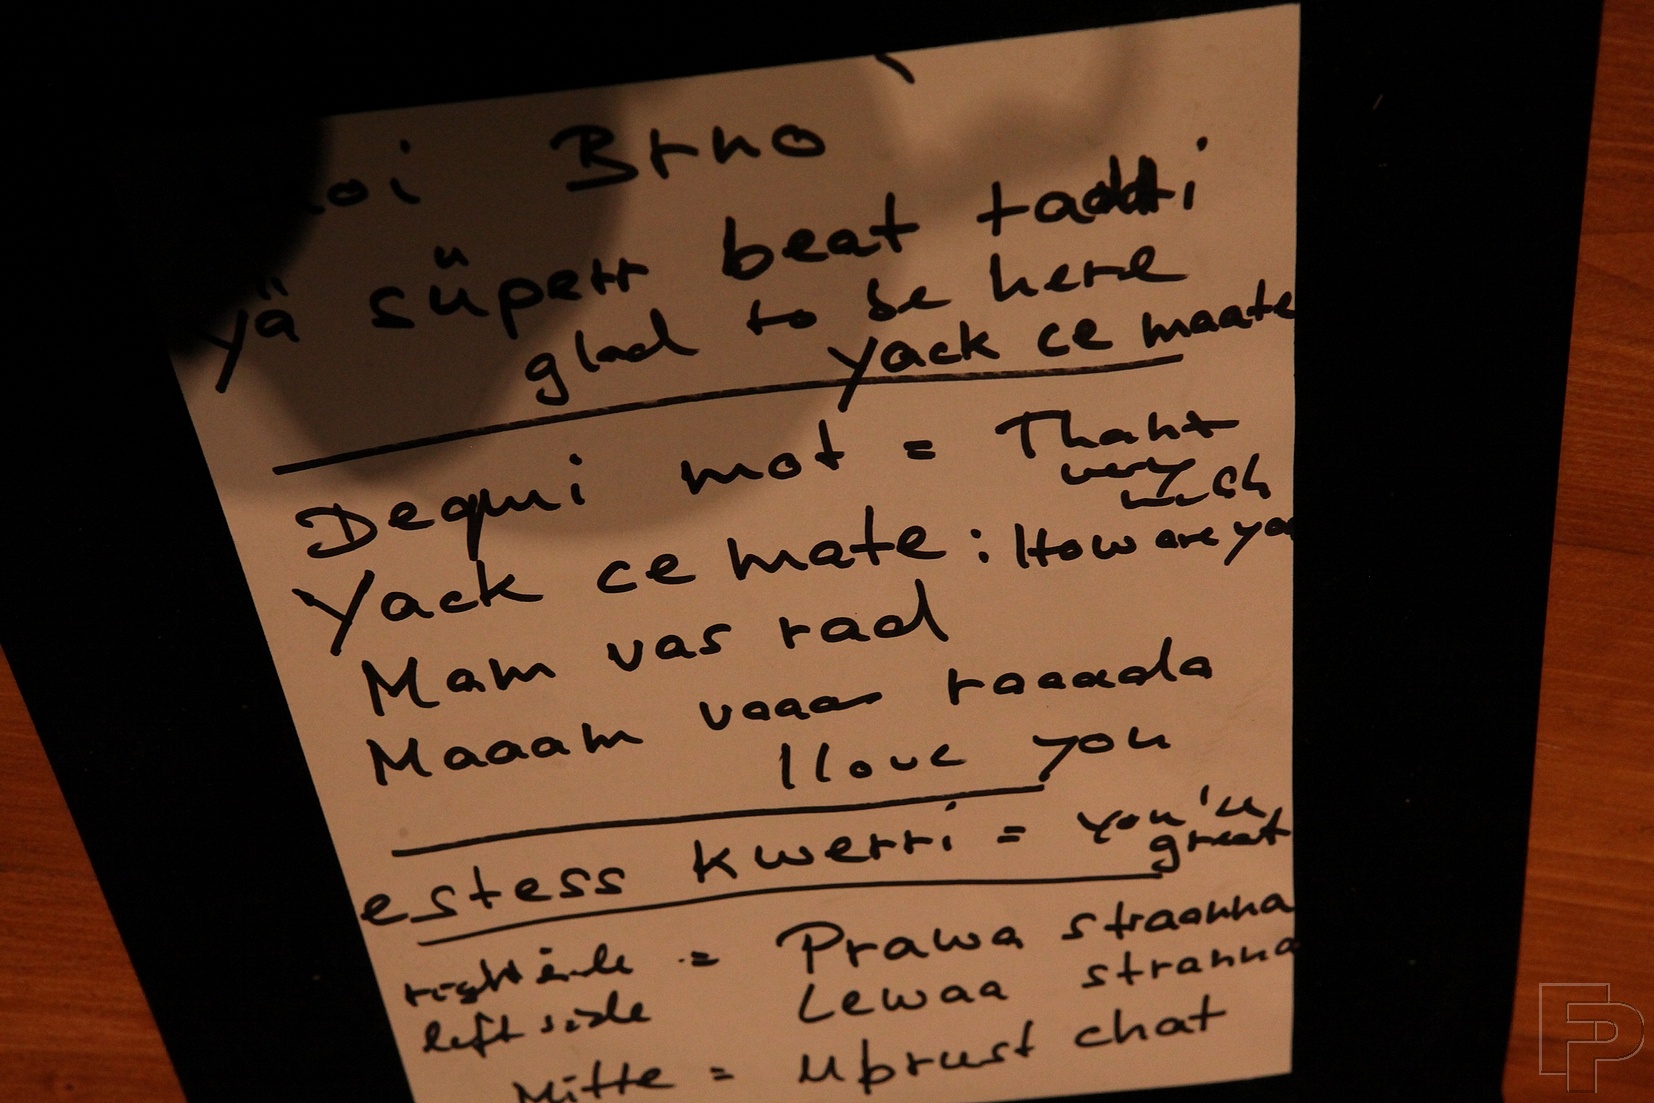 hoi Brno
yä süperr beat taddi
glad to be here
yack ce maate
Deqmi mot = Thank
very
much
Yack ce mate : How are you
Mam vas rad
Maaam vaaa raaada
I love you
estess kwerri = you're
great
right side = Prawa straanna
left side Lewaa stranna
Mitte = uprust chat
FP